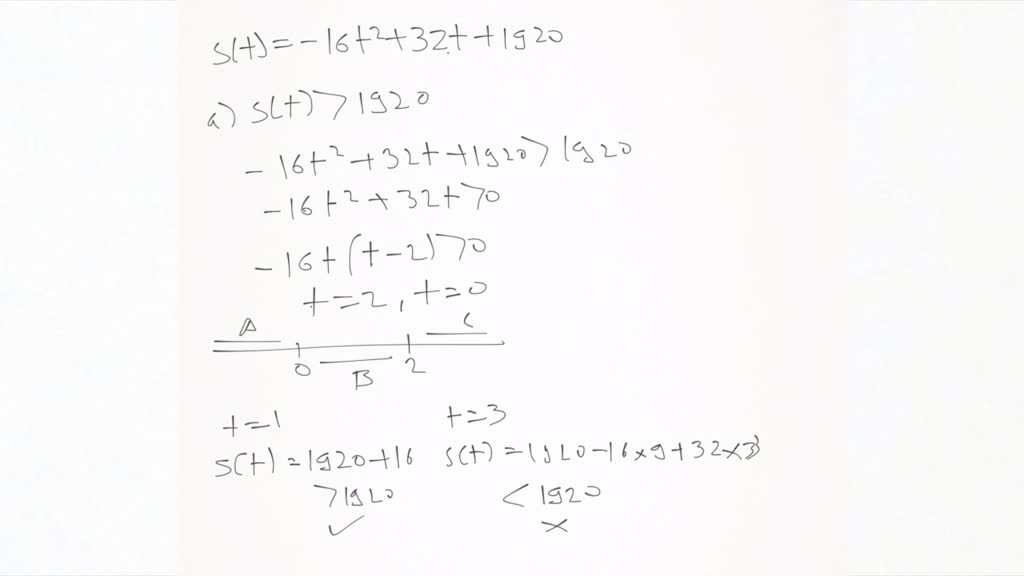 s(t) = -16t²+32t+1920
a) s(t) > 1920
-16t²+32t+1920 > 1920
-16t²+32t > 0
-16t(t-2) > 0
t=2, t=0
A C
0 B 2
t=1 t=3
s(t) = 1920+16 s(t) = 1920-16×9+32×3
>1920 < 1920
✓ ×